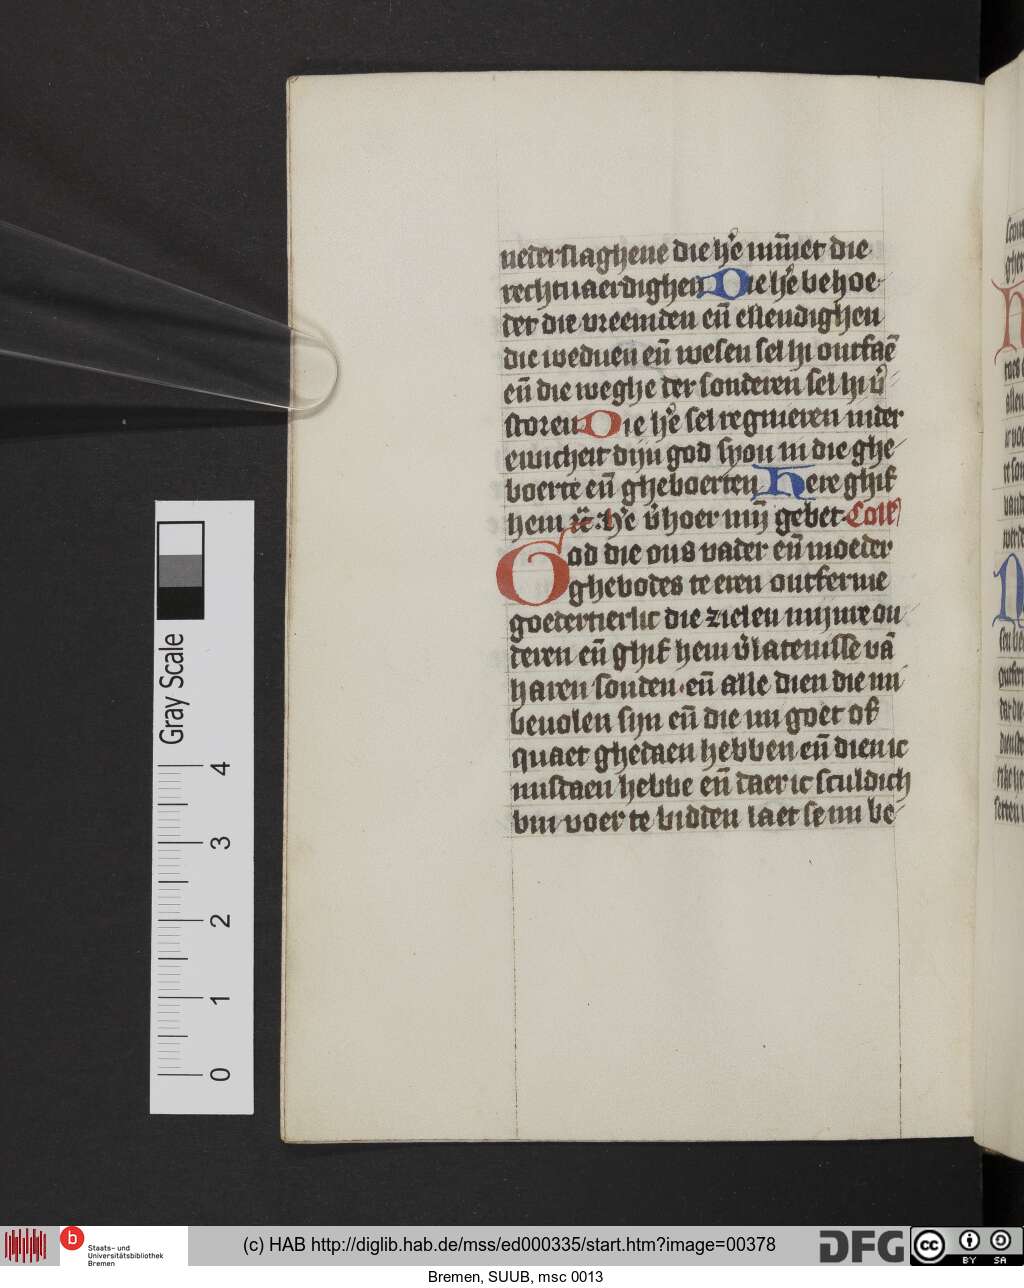 nederslaghene die hẽ mĩnet die
rechtuaerdighen Die hẽ behoe-
det die vreemden eñ ellendighen
die weduen eñ wesen sel hi ontfaẽ
eñ die weghe der sonderen sel hi ṽ-
storen Die hẽ sel regnieren inder
ewicheit dijn god syon in die ghe-
boerte eñ gheboerten Here ghif
hem zc̃. Hẽ ṽhoer mijñ gebet. Coll
God die ons vader eñ moeder
ghebodes te eren ontferme
goedertierlic die zielen mijnre ou-
deren eñ ghif hem ṽlatenisse vã
haren sonden. eñ alle dien die mi
beuolen sijn eñ die mi goet of
quaet ghedaen hebben eñ dien ic
misdaen hebbe eñ daer ic sculdich
bin voer te bidden laet se nu be-
Gray Scale
0 1 2 3 4
b
Staats- und
Universitätsbibliothek
Bremen
(c) HAB http://diglib.hab.de/mss/ed000335/start.htm?image=00378
DFG
cc BY SA
Bremen, SUUB, msc 0013